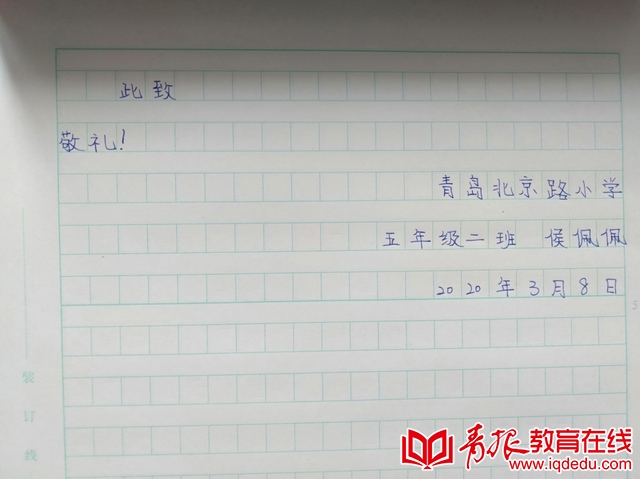 此致
敬礼!
青岛北京路小学
五年级二班 侯佩佩
2020年3月8日
5
装订线
青报教育在线
www.iqdedu.com